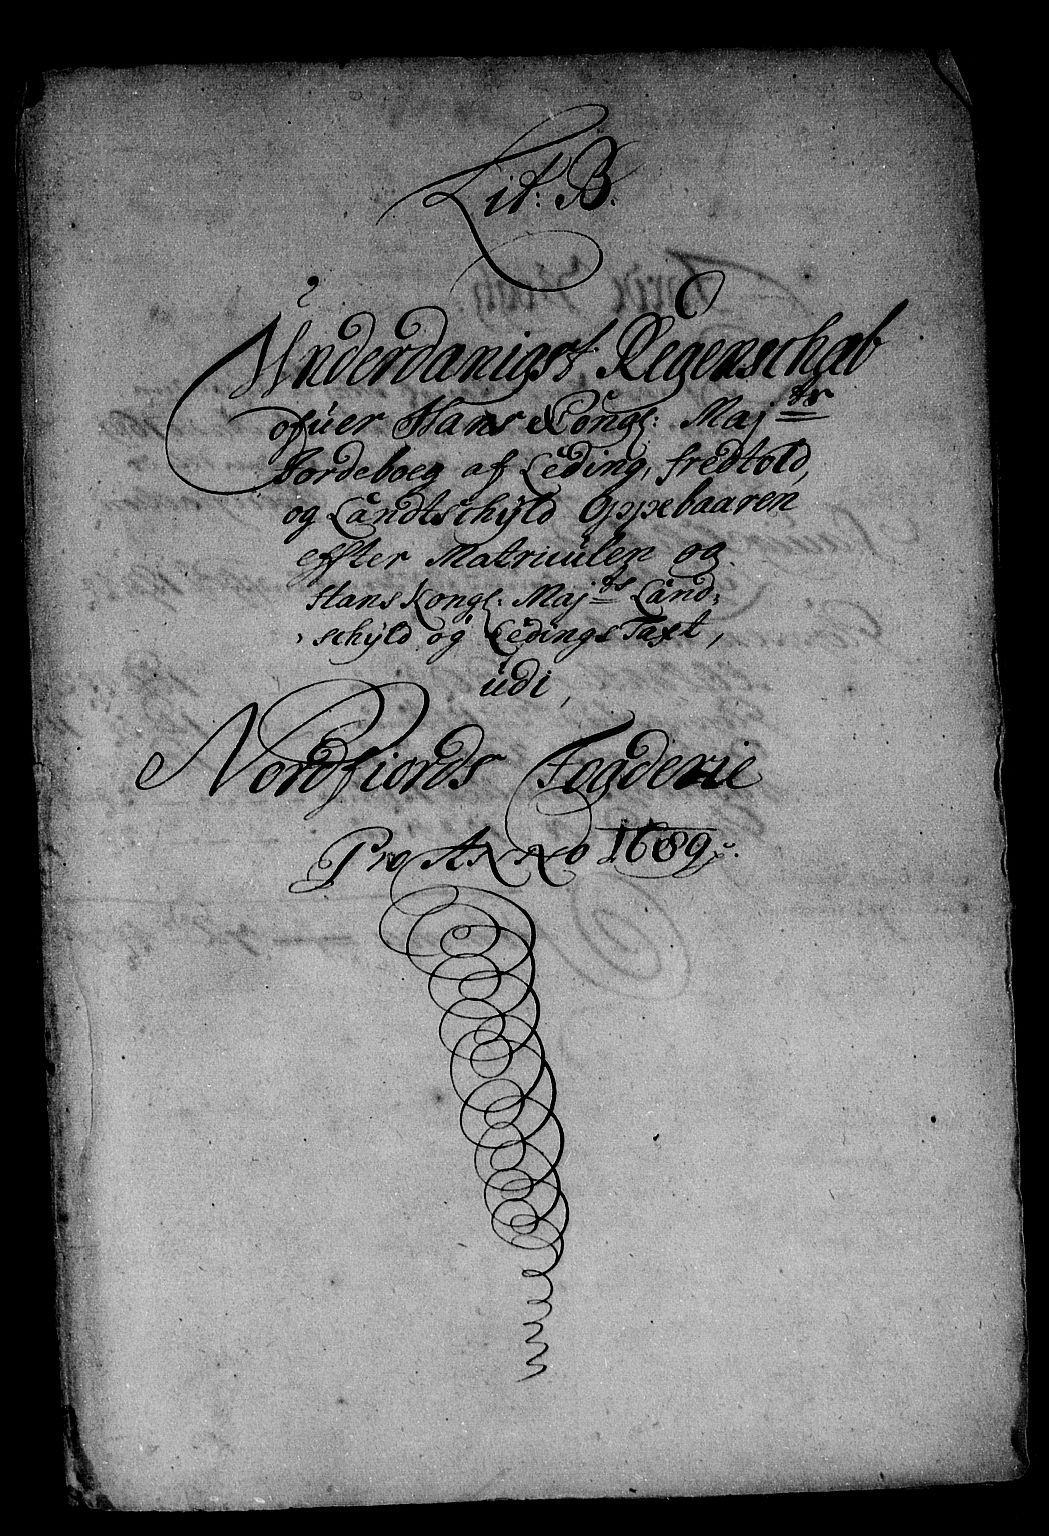 Lit: B.
Underdanigst Regenschab
ofuer Hans Kongl: Maj:ts
Jordeboeg af Leding, fredtold,
og Landtschÿld Oppebaaren
effter Matriculen og
Hans Kongl: Maj:ts Land-
schÿld og Ledings Taxt,
udi,
Nordfiords Fogderie
Pro Anno 1689.